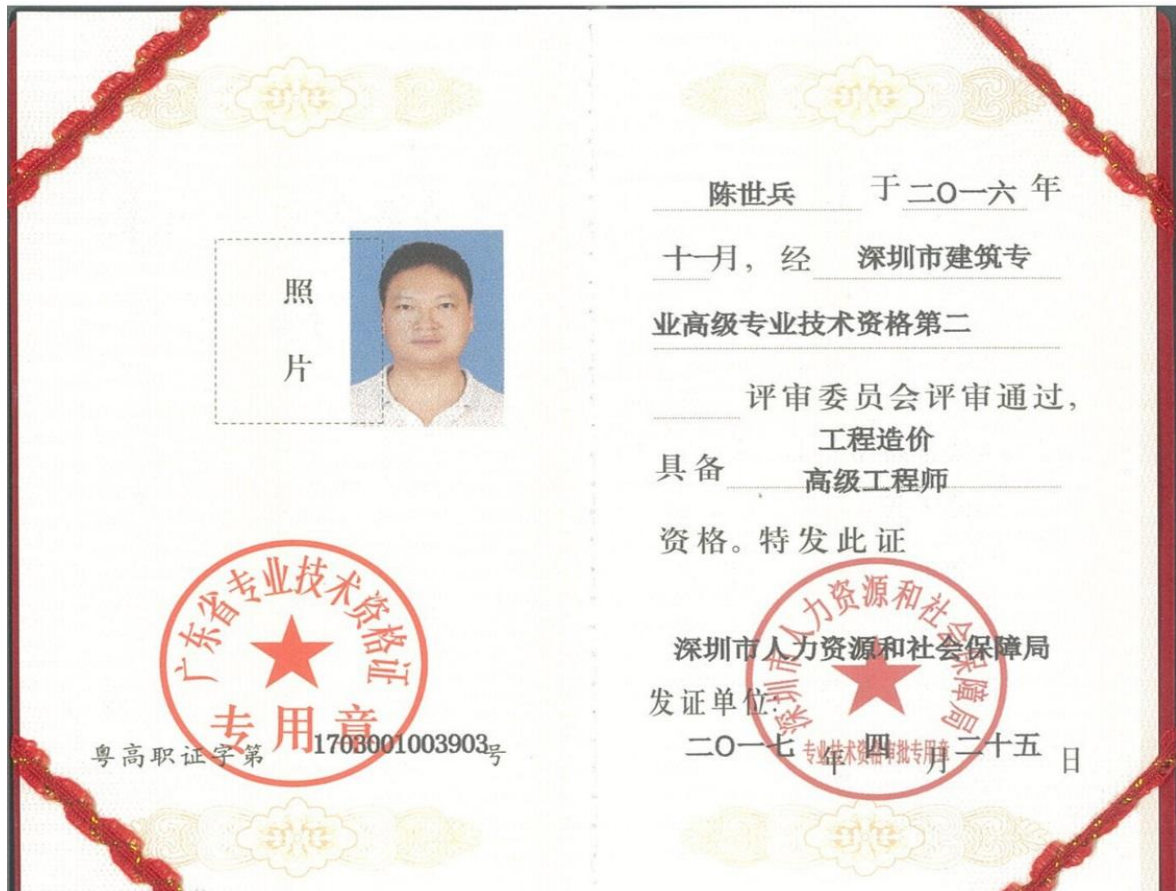 照
片
广东省专业技术资格证
专用章
粤高职证字第 1703001003903号
陈世兵 于二〇一六年
十一月，经 深圳市建筑专
业高级专业技术资格第二
评审委员会评审通过，
工程造价
具备 高级工程师
资格。特发此证
深圳市人力资源和社会保障局
深圳市人力资源和社会保障局
发证单位:
专业技术资格审批专用章
二〇一七年四月二十五日